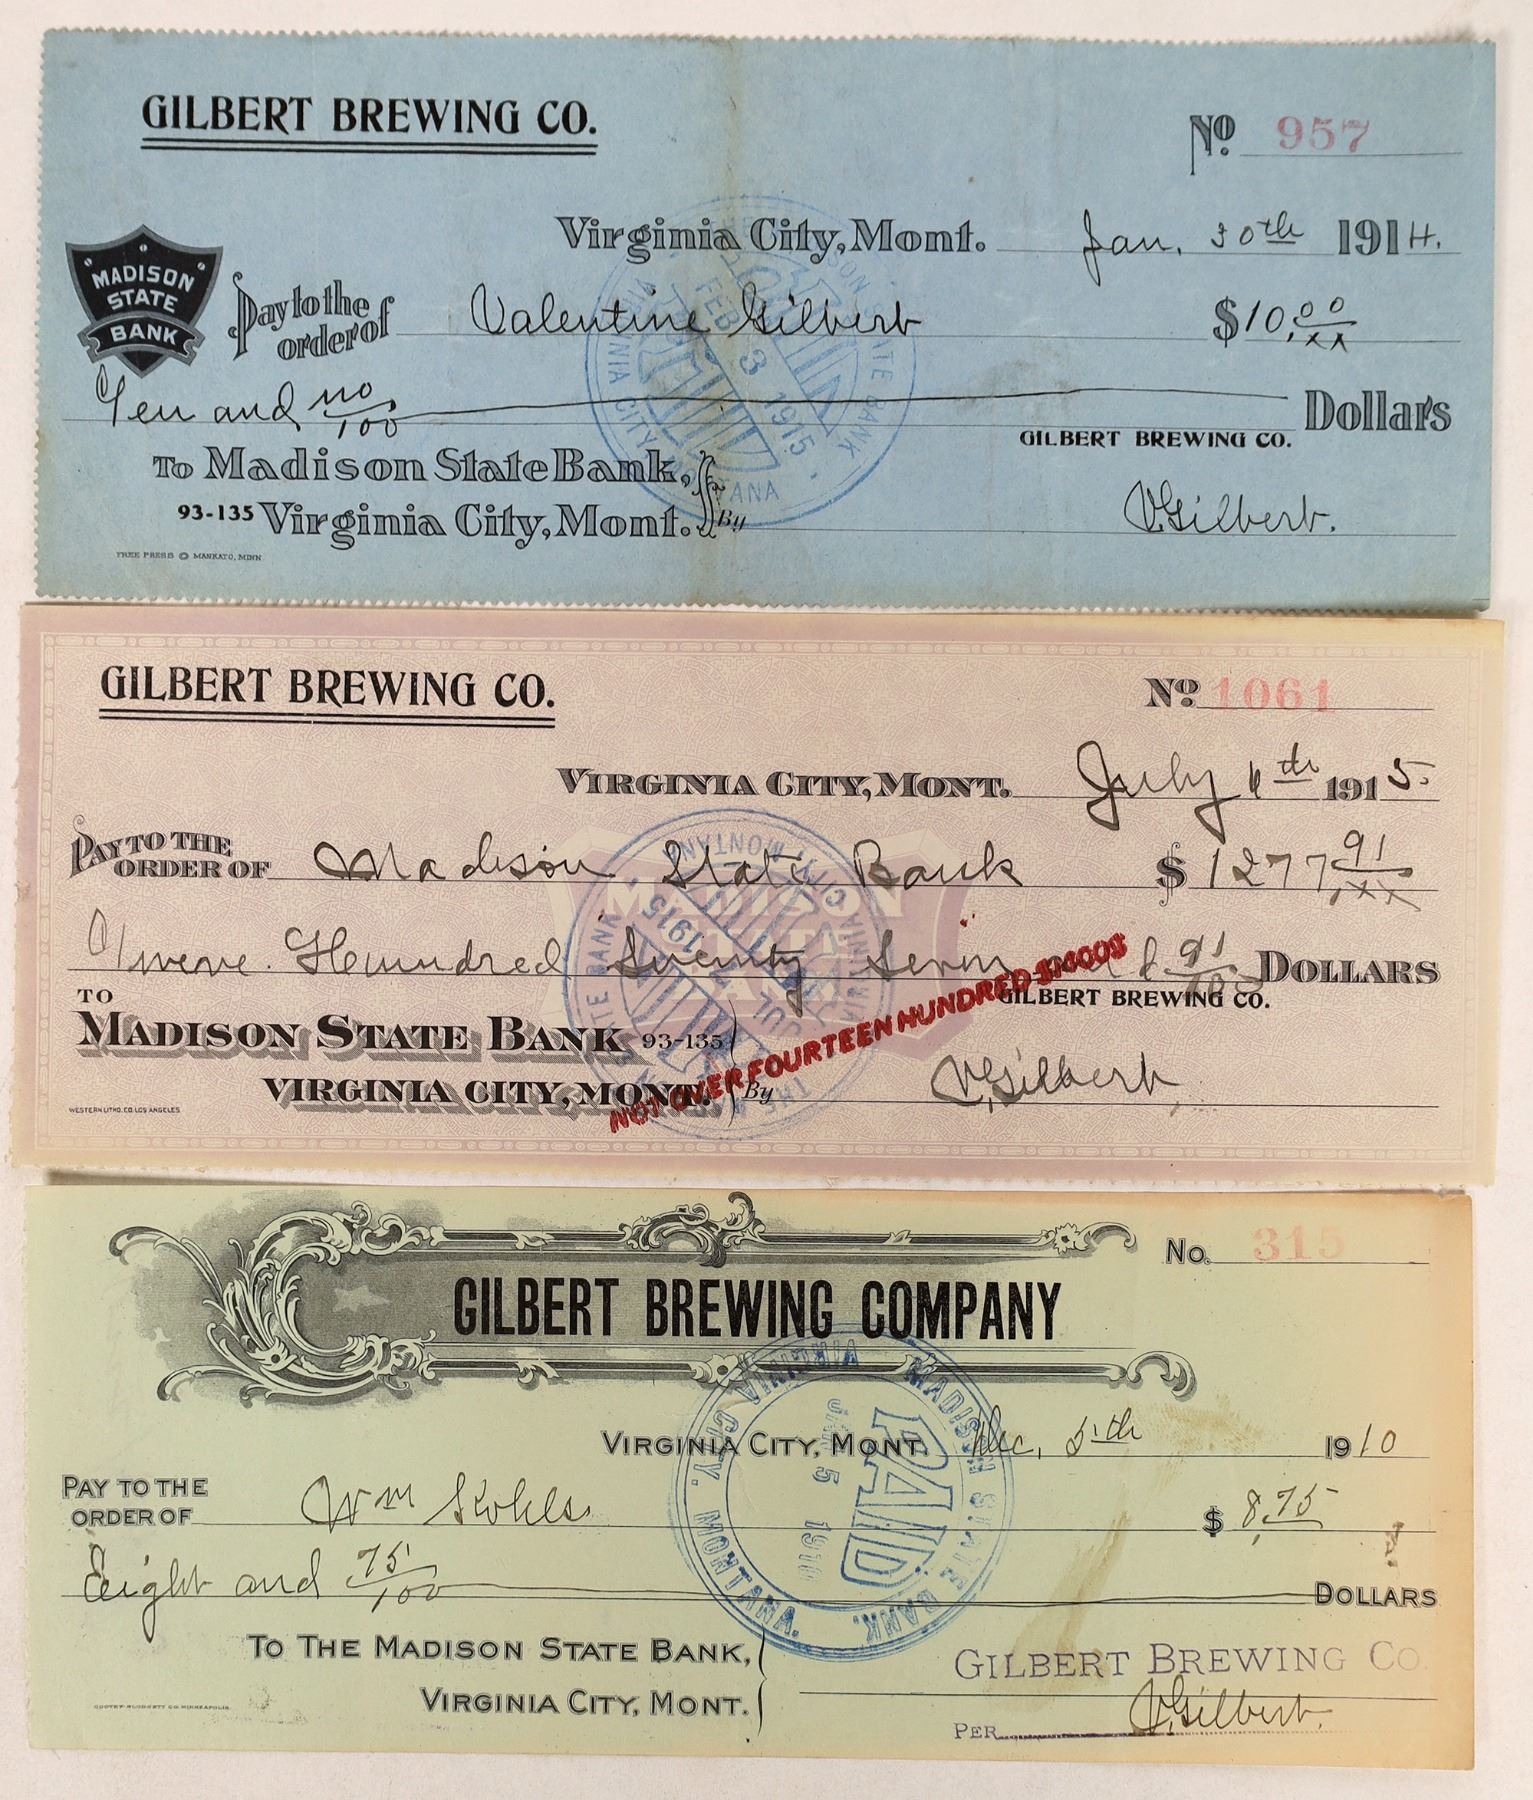 GILBERT BREWING CO.
No. 957
Virginia City, Mont. Jan. 30th 1914.
"MADISON STATE BANK"
Pay to the order of Valentine Gilbert $10.00/xx
Ten and no/100 Dollars
GILBERT BREWING CO.
To Madison State Bank,
93-135 Virginia City, Mont. By V. Gilbert.
FREE PRESS © MANKATO, MINN.
MADISON STATE BANK
VIRGINIA CITY, MONTANA
FEB 3 1915
GILBERT BREWING CO.
No. 1061
VIRGINIA CITY, MONT. July 6th 1915
PAY TO THE ORDER OF Madison State Bank $1277,91/xx
Twelve Hundred Seventy Seven and 91/100 DOLLARS
MADISON STATE BANK
NOT OVER FOURTEEN HUNDRED $1400$
GILBERT BREWING CO.
TO
MADISON STATE BANK 93-135
VIRGINIA CITY, MONT. By V. Gilbert,
WESTERN LITHO. CO. LOS ANGELES
JUL 1915
No. 315
GILBERT BREWING COMPANY
VIRGINIA CITY, MONT. Dec. 5th 1910
PAY TO THE ORDER OF Wm $ 8.75
Eight and 75/100 DOLLARS
TO THE MADISON STATE BANK,
VIRGINIA CITY, MONT.
GILBERT BREWING CO.
PER V. Gilbert.
MADISON STATE BANK.
VIRGINIA CITY. MONTANA.
PAID
5 1910